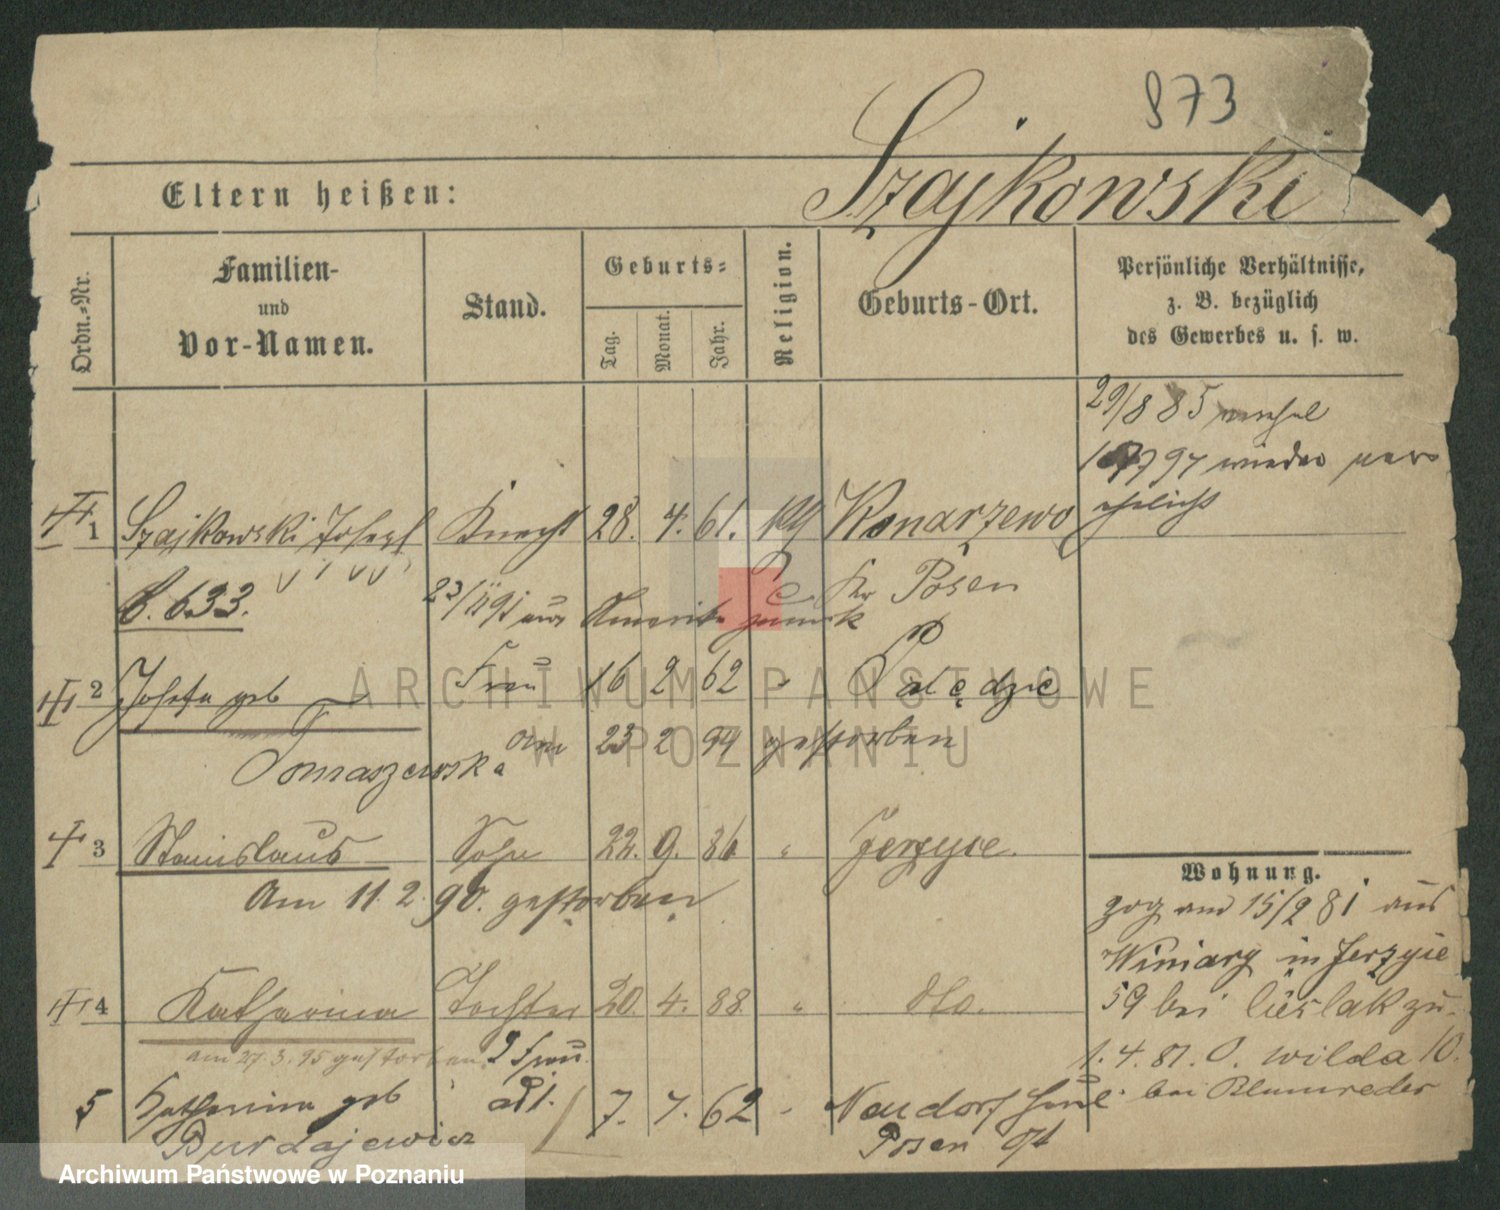 873
Szajkowski
Eltern heißen:
Ordn.-Nr.
Familien-
und
Vor-Namen.
Stand.
Geburts-
Tag.
Monat.
Jahr.
Religion.
Geburts-Ort.
Persönliche Verhältnisse,
z. B. bezüglich
des Gewerbes u. s. w.
29/8 85
97 wieder
1 Szajkowski Joseph Knecht 28. 4. 61. Konarzewo
633. Kr Posen
aus Amerika zurück
2 Josefa geb Frau 16 2 62 " Palędzie
Tomaszewska am 23 2 94 gestorben
3 Stanislaus Sohn 22. 9. 86 " Jerzyce.
Am 11. 2. 90. gestorben
Wohnung.
zog am 15/2 81 aus
Winiary in Jerzyce
4 Katharina Tochter 20. 4. 88. " dto.
59 bei Cieslak zu.
am 27. 3. 95 gestorben 2 Frau.
1. 4. 87. O. wilda 10.
5 Katharina geb 7. 7. 62 Neudorf
bei Blumreder
Burdajewicz Posen Ost
ARCHIWUM PAŃSTWOWE
W POZNANIU
Archiwum Państwowe w Poznaniu